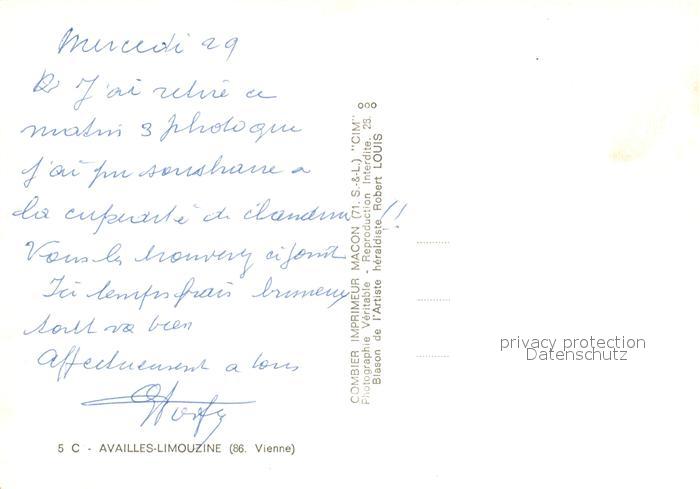 Mercredi 29
J'ai retiré ce
matin 3 photo que
j'ai pu soustraire a
la cupidité de
Vous les trouverez ci joint
Ici temps frais brumeux
tout va bien
Affectueusement a tous
5 C - AVAILLES-LIMOUZINE (86. Vienne)
COMBIER IMPRIMEUR MACON (71. S.-&-L.) "CIM"
Photographie Véritable - Reproduction Interdite. 23.
Blason de l'Artiste héraldiste Robert LOUIS
privacy protection
Datenschutz